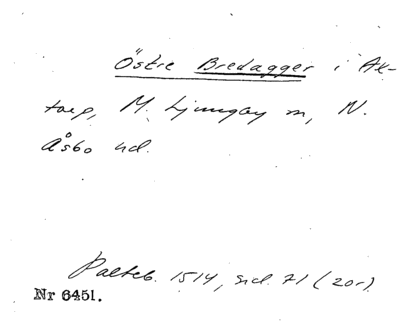 Östre Bredagger i Ak-
torp, M. Ljungby sn, N.
Åsbo hd.
Palteb. 1514, sid. 71 (20r)
Nr 6451.